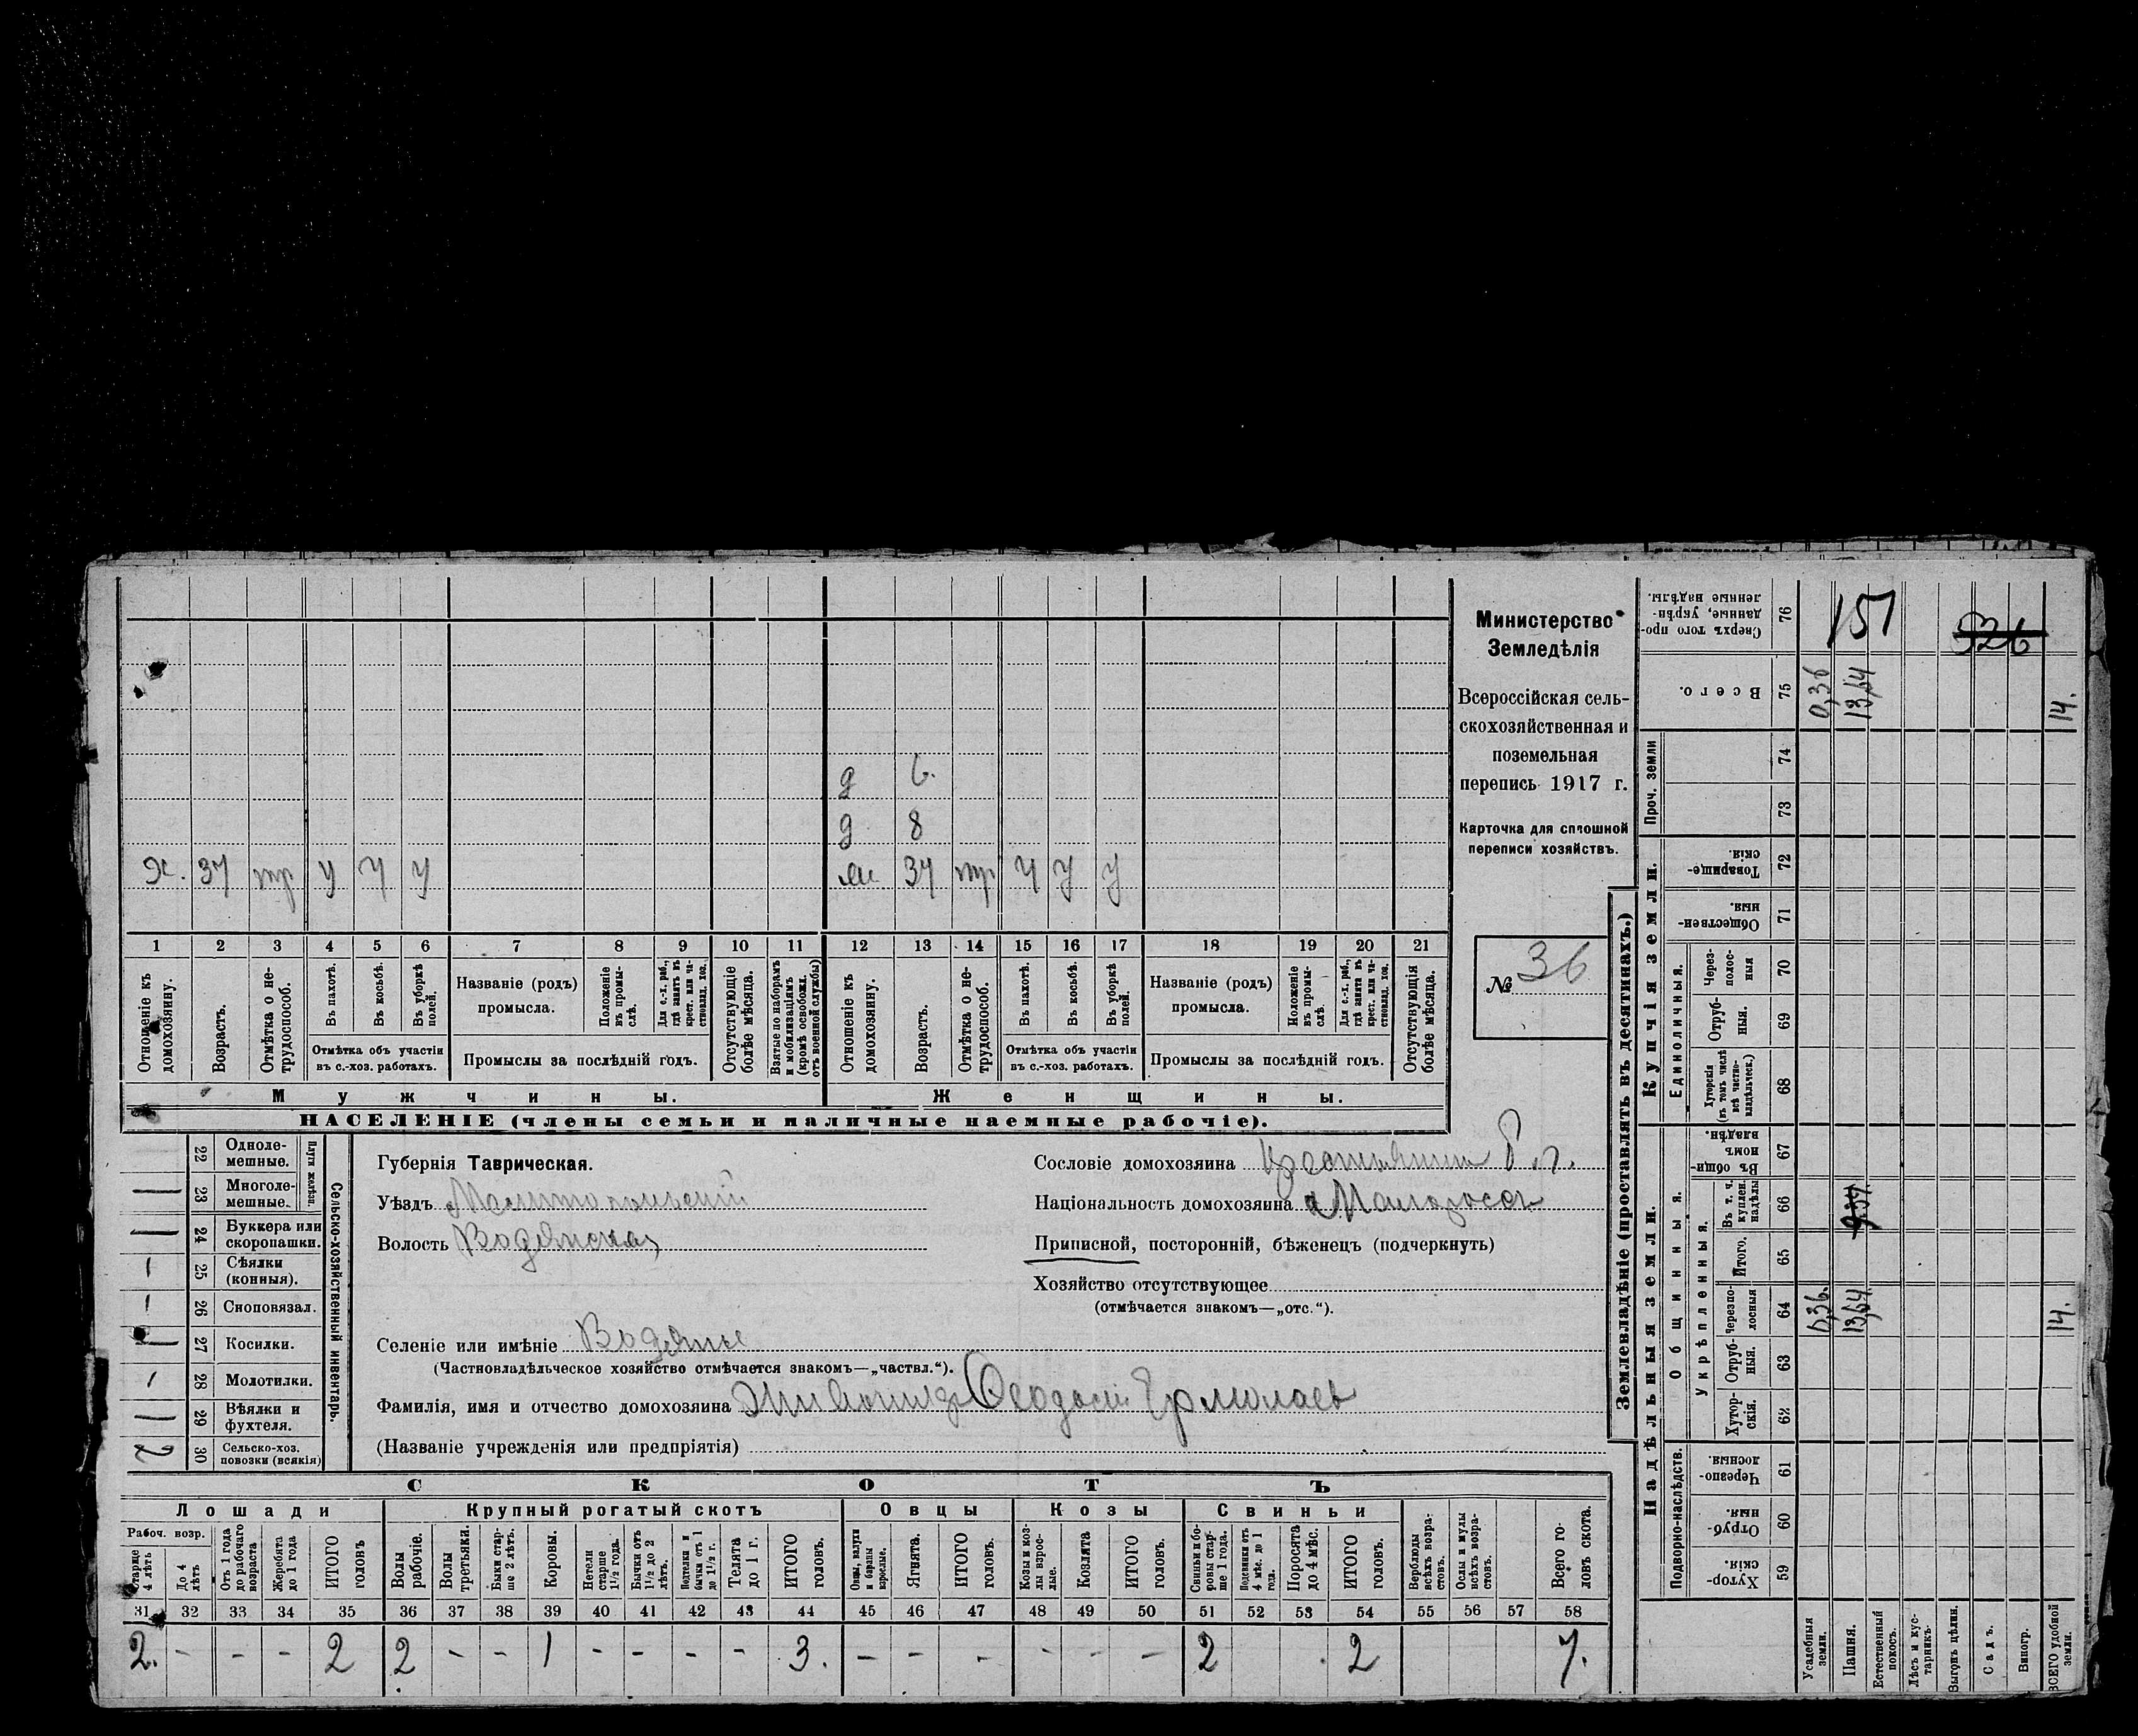 Министерство
Земледѣлія
Всероссійская сель-
скохозяйственная и
поземельная
перепись 1917 г.
Карточка для сплошной
переписи хозяйствъ.
№ 36
д 6.
д 8
х. 37 тр у у у 37 тр у у у
1 2 3 4 5 6 7 8 9 10 11 12 13 14 15 16 17 18 19 20 21
Отношеніе къ домохозяину.
Возрастъ.
Отмѣтка о не-трудоспособ.
Въ пахотѣ.
Въ косьбѣ.
Въ уборкѣ полей.
Отмѣтка объ участіи въ с.-хоз. работахъ.
Названіе (родъ) промысла.
Положеніе въ промы-слѣ.
Для с.-х. раб., гдѣ занятъ въ крест. или ча-стновлад. хоз.
Промыслы за послѣдній годъ.
Отсутствующіе болѣе мѣсяца.
Взятые по наборамъ и мобилизаціямъ (кромѣ освобожд. отъ военной службы)
Отношеніе къ домохозяину.
Возрастъ.
Отмѣтка о не-трудоспособ.
Въ пахотѣ.
Въ косьбѣ.
Въ уборкѣ полей.
Отмѣтка объ участіи въ с.-хоз. работахъ.
Названіе (родъ) промысла.
Положеніе въ промы-слѣ.
Для с.-х. раб., гдѣ занята въ крест. или ча-стновлад. хоз.
Промыслы за послѣдній годъ.
Отсутствующія болѣе мѣсяца.
Мужчины. Женщины.
НАСЕЛЕНІЕ (члены семьи и наличные наемные рабочіе).
Сельско-хозяйственный инвентарь.
Плуги желѣзн.
— 22 Одноле-мешные.
— 23 Многоле-мешные.
— 24 Буккера или скоропашки.
1 25 Сѣялки (конныя).
1 26 Сноповязал.
— 27 Косилки.
1 28 Молотилки.
— 29 Вѣялки и фухтеля.
2 30 Сельско-хоз. повозки (всякія)
Губернія Таврическая.
Уѣздъ Мелитопольскій
Волость Водянская
Сословіе домохозяина крестьянинъ
Національность домохозяина Малороссъ
Приписной, посторонній, бѣженецъ (подчеркнуть)
Хозяйство отсутствующее
(отмѣчается знакомъ—„отс.“).
Селеніе или имѣніе Водяное
(Частновладѣльческое хозяйство отмѣчается знакомъ—„частвл.“).
Фамилія, имя и отчество домохозяина Феодосій Ермолаевъ
(Названіе учрежденія или предпріятія)
СКОТЪ
Лошади Крупный рогатый скотъ Овцы Козы Свиньи
Рабоч. возр.
Старше 4 лѣтъ
До 4 лѣтъ
Отъ 1 года до рабочаго возраста
Жеребята до 1 года
ИТОГО головъ
Волы рабочіе.
Волы третьяки.
Быки стар-ше 2 лѣтъ.
Коровы.
Нетели старше 1½ года.
Бычки отъ 1½ до 2 лѣтъ.
Подтелки и бычки отъ 1 до 1½ г.
Телята до 1 г.
ИТОГО головъ.
Овцы, валухи и бараны взрослые.
Ягнята.
ИТОГО головъ.
Козы и коз-лы взрос-лые.
Козлята
ИТОГО головъ.
Свиньи и бо-ровы стар-ше 1 года.
Подсвинки отъ 4 мѣс. до 1 года.
Поросята до 4 мѣс.
ИТОГО головъ.
Верблюды всѣхъ возра-стовъ.
Ослы и мулы всѣхъ возра-стовъ.
Всего го-ловъ скота.
31 32 33 34 35 36 37 38 39 40 41 42 43 44 45 46 47 48 49 50 51 52 53 54 55 56 57 58
2. - - - 2 2 - - 1 - - - - 3. - - - - - - 2 2 7.
Землевладѣніе (проставлять въ десятинахъ.)
Надѣльныя земли. Купчія земли. Проч. земли
Подворно-наслѣдств.
Общинныя.
Укрѣпленныя.
Единоличныя.
Хутор-скія. 59
Отруб-ныя. 60
Черезпо-лосныя. 61
Хутор-скія. 62
Отруб-ныя. 63
Черезпо-лосныя 64 0,36. 13,64. 14.
Итого. 65
Въ т. ч. куплен. надѣлы 66
Въ общи-номъ владѣн. 67
Хуторскія (въ томъ числѣ всѣ частно-владѣльческ.) 68
Отруб-ныя. 69
Через-полос-ныя 70
Обществен-ныя. 71
Товарище-скія. 72
73
74
Всего. 75 0,36 13,64 14.
Сверхъ того про-данные, укрѣп-ленные надѣлы. 76
151 526
Усадебныя земли.
Пашня.
Естественный покосъ.
Лѣсъ и кус-тарникъ.
Выгонъ цѣлин.
Садъ.
Виногр.
ВСЕГО удобной земли.